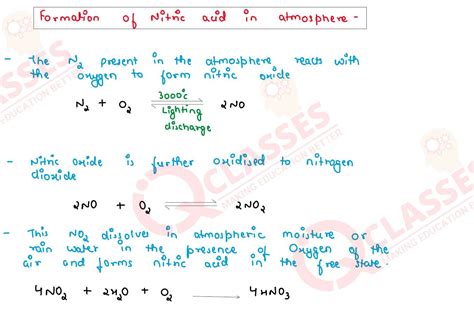 Formation of Nitric acid in atmosphere -
- The N₂ present in the atmosphere reacts with
the oxygen to form nitric oxide
N₂ + O₂ ⇌ 2NO
3000°c
Lighting
discharge
- Nitric oxide is further oxidised to nitrogen
dioxide
2NO + O₂ ⇌ 2NO₂
- This NO₂ dissolves in atmospheric moisture or
rain water in the presence of Oxygen of the
air and forms nitric acid in the free state.
4NO₂ + 2H₂O + O₂ → 4HNO₃
CLASSES
MAKING EDUCATION BETTER